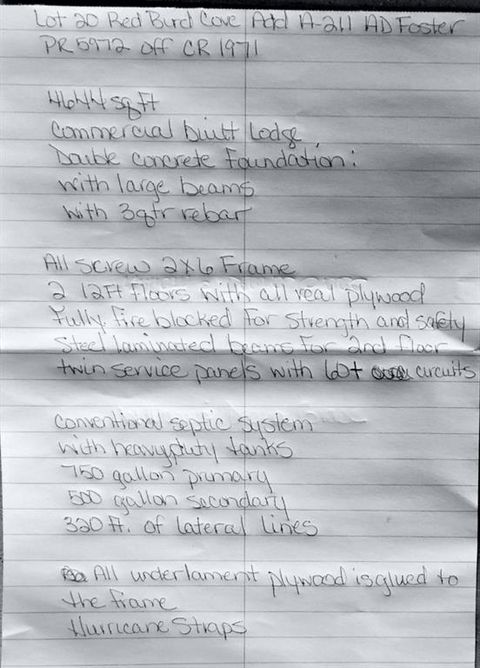 Lot 20 Red Burd Cove Add A-211 AD Foster
PR 5972 off CR 1971
4644 sq ft
Commercial built Lodge
Double concrete foundation:
with large beams
with 3qtr rebar
All screw 2x6 Frame
2 12ft floors with all real plywood
fully fire blocked for strength and safety
Steel laminated beams for 2nd floor
twin service panels with 60+ circuits
Conventional septic system
with heavy duty tanks
750 gallon primary
500 gallon secondary
320 ft. of lateral lines
All underlament plywood is glued to
the frame
Hurricane Straps